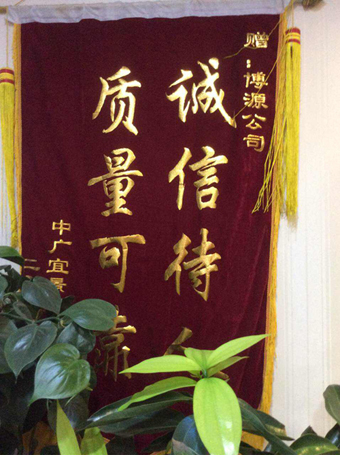 赠：博源公司
诚信待人
质量可靠
中广宜景
二